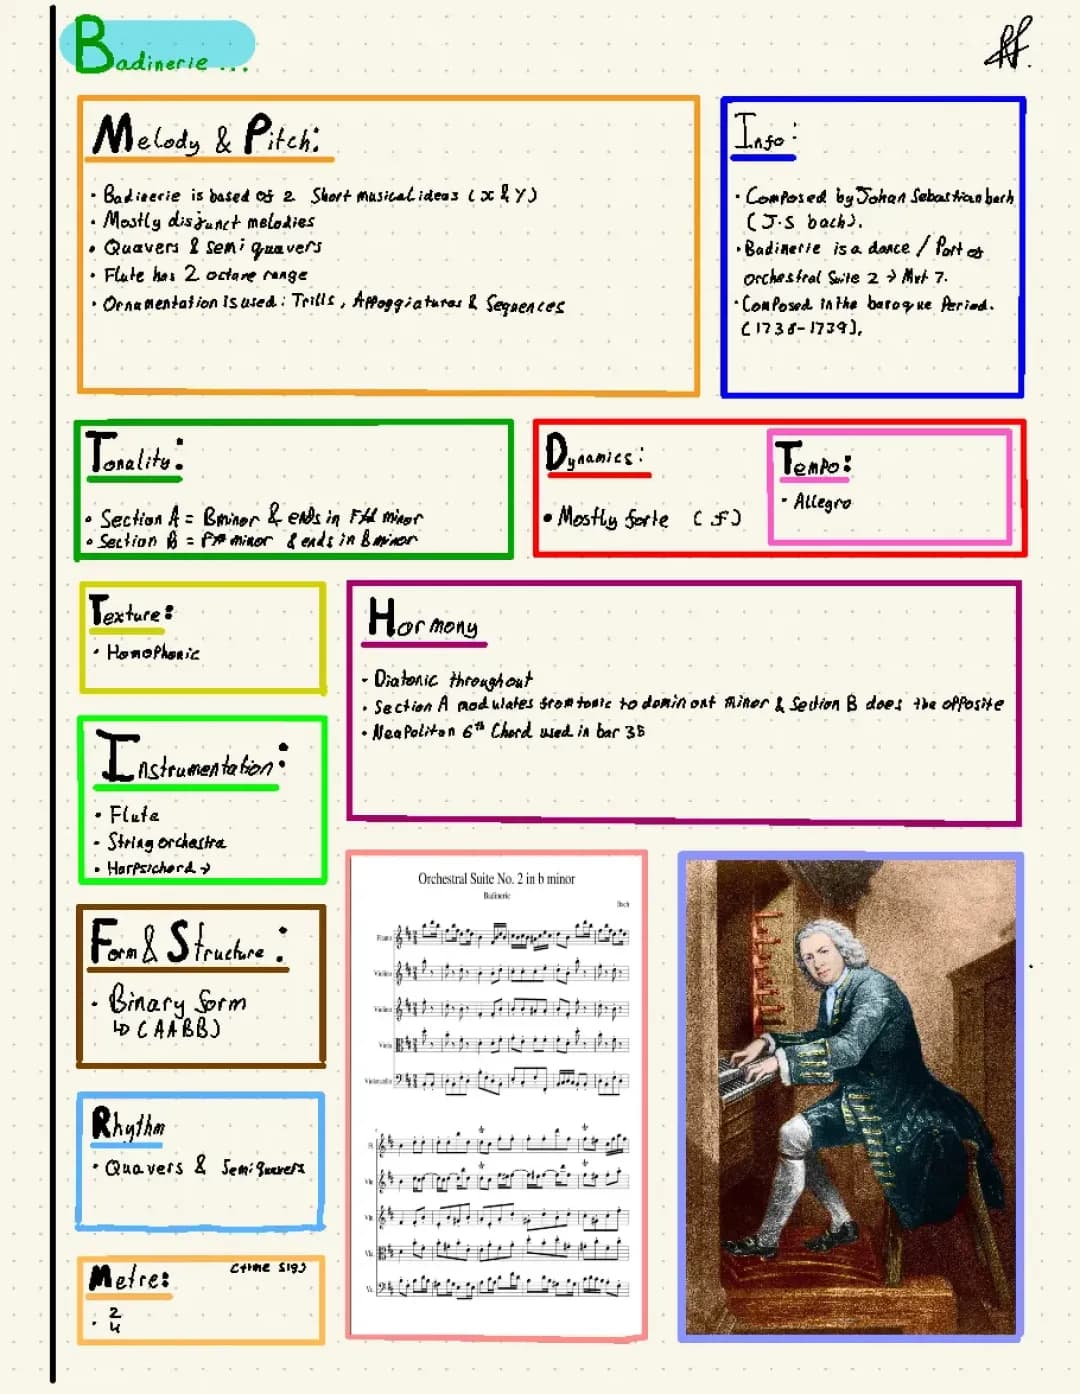 Badinerie ...
Melody & Pitch:
• Badinerie is based of 2 Short musical ideas (x & Y)
• Mostly disjunct melodies
• Quavers & Semi quavers
• Flute has 2 octave range
• Ornamentation is used: Trills, Appoggiaturas & Sequences
Info:
• Composed by Johan Sebastian bach
(J.S bach).
• Badinerie is a dance / Part of
orchestral Suite 2 → Mvt 7.
• Composed in the baroque Period.
(1738-1739).
Tonality:
• Section A = Bminor & ends in F# minor
• Section B = F# minor & ends in B minor
Dynamics:
• Mostly forte (f)
Tempo:
• Allegro
Texture:
• Homophonic
Harmony
• Diatonic throughout
• Section A modulates from tonic to dominant minor & Section B does the opposite
• Neapolitan 6th Chord used in bar 35
Instrumentation:
• Flute
• String orchestra
• Harpsichord →
Form & Structure:
• Binary form
↳ (AABB)
Rhythm
• Quavers & Semiquavers
Metre: (time sig)
• 2
4
Orchestral Suite No. 2 in b minor
Badinerie
Bach
Violino
Violino
Viola
Violoncello